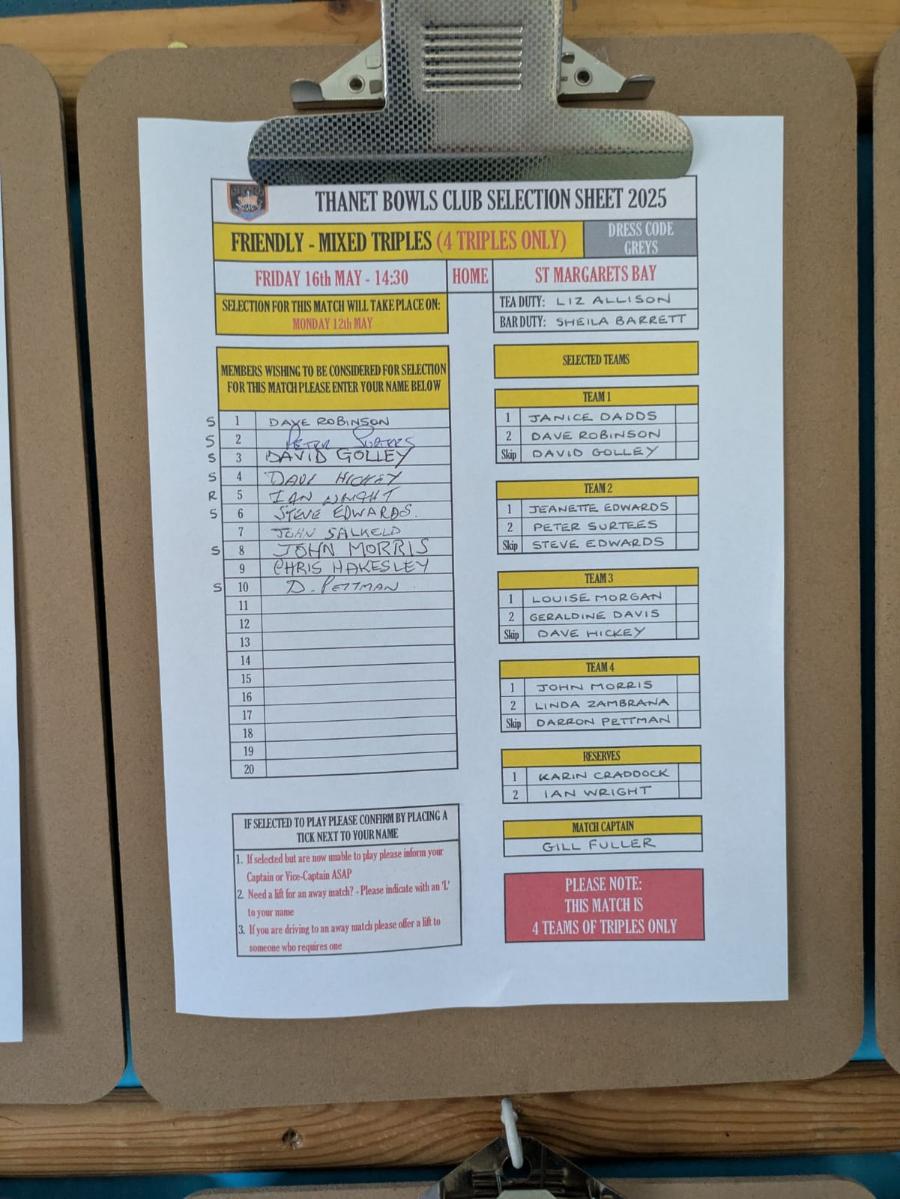 THANET BOWLS CLUB SELECTION SHEET 2025
FRIENDLY - MIXED TRIPLES (4 TRIPLES ONLY)
DRESS CODE
GREYS
FRIDAY 16th MAY - 14:30 HOME ST MARGARETS BAY
SELECTION FOR THIS MATCH WILL TAKE PLACE ON:
MONDAY 12th MAY
TEA DUTY: LIZ ALLISON
BAR DUTY: SHEILA BARRETT
MEMBERS WISHING TO BE CONSIDERED FOR SELECTION
FOR THIS MATCH PLEASE ENTER YOUR NAME BELOW
S 1 DAVE ROBINSON
S 2 PETER SURTEES
S 3 DAVID GOLLEY
S 4 DAVE HICKEY
R 5 IAN WRIGHT
S 6 STEVE EDWARDS.
7 JOHN SALKELD
S 8 JOHN MORRIS
9 CHRIS HAKESLEY
S 10 D. PETTMAN
11
12
13
14
15
16
17
18
19
20
IF SELECTED TO PLAY PLEASE CONFIRM BY PLACING A
TICK NEXT TO YOUR NAME
1. If selected but are now unable to play please inform your
Captain or Vice-Captain ASAP
2. Need a lift for an away match? - Please indicate with an 'L'
to your name
3. If you are driving to an away match please offer a lift to
someone who requires one
SELECTED TEAMS
TEAM 1
1 JANICE DADDS
2 DAVE ROBINSON
Skip DAVID GOLLEY
TEAM 2
1 JEANETTE EDWARDS
2 PETER SURTEES
Skip STEVE EDWARDS
TEAM 3
1 LOUISE MORGAN
2 GERALDINE DAVIS
Skip DAVE HICKEY
TEAM 4
1 JOHN MORRIS
2 LINDA ZAMBRANA
Skip DARRON PETTMAN
RESERVES
1 KARIN CRADDOCK
2 IAN WRIGHT
MATCH CAPTAIN
GILL FULLER
PLEASE NOTE:
THIS MATCH IS
4 TEAMS OF TRIPLES ONLY